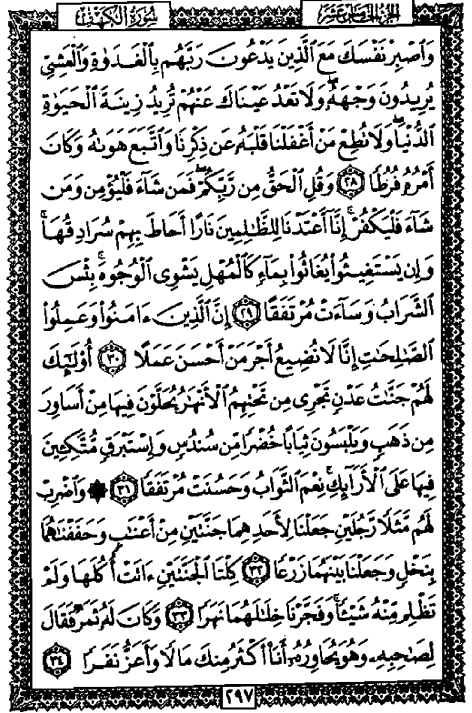 سورة الكهف
الجزء الخامس عشر
وَٱصْبِرْ نَفْسَكَ مَعَ ٱلَّذِينَ يَدْعُونَ رَبَّهُم بِٱلْغَدَوٰةِ وَٱلْعَشِىِّ
يُرِيدُونَ وَجْهَهُۥ وَلَا تَعْدُ عَيْنَاكَ عَنْهُمْ تُرِيدُ زِينَةَ ٱلْحَيَوٰةِ
ٱلدُّنْيَا وَلَا تُطِعْ مَنْ أَغْفَلْنَا قَلْبَهُۥ عَن ذِكْرِنَا وَٱتَّبَعَ هَوَىٰهُ وَكَانَ
أَمْرُهُۥ فُرُطًا ٢٨ وَقُلِ ٱلْحَقُّ مِن رَّبِّكُمْ فَمَن شَآءَ فَلْيُؤْمِن وَمَن
شَآءَ فَلْيَكْفُرْ إِنَّآ أَعْتَدْنَا لِلظَّٰلِمِينَ نَارًا أَحَاطَ بِهِمْ سُرَادِقُهَا
وَإِن يَسْتَغِيثُوا۟ يُغَاثُوا۟ بِمَآءٍ كَٱلْمُهْلِ يَشْوِى ٱلْوُجُوهَ بِئْسَ
ٱلشَّرَابُ وَسَآءَتْ مُرْتَفَقًا ٢٩ إِنَّ ٱلَّذِينَ ءَامَنُوا۟ وَعَمِلُوا۟
ٱلصَّٰلِحَٰتِ إِنَّا لَا نُضِيعُ أَجْرَ مَنْ أَحْسَنَ عَمَلًا ٣٠ أُو۟لَٰٓئِكَ
لَهُمْ جَنَّٰتُ عَدْنٍ تَجْرِى مِن تَحْتِهِمُ ٱلْأَنْهَٰرُ يُحَلَّوْنَ فِيهَا مِنْ أَسَاوِرَ
مِن ذَهَبٍ وَيَلْبَسُونَ ثِيَابًا خُضْرًا مِّن سُندُسٍ وَإِسْتَبْرَقٍ مُّتَّكِـِٔينَ
فِيهَا عَلَى ٱلْأَرَآئِكِ نِعْمَ ٱلثَّوَابُ وَحَسُنَتْ مُرْتَفَقًا ٣١ ۞ وَٱضْرِبْ
لَهُم مَّثَلًا رَّجُلَيْنِ جَعَلْنَا لِأَحَدِهِمَا جَنَّتَيْنِ مِنْ أَعْنَٰبٍ وَحَفَفْنَٰهُمَا
بِنَخْلٍ وَجَعَلْنَا بَيْنَهُمَا زَرْعًا ٣٢ كِلْتَا ٱلْجَنَّتَيْنِ ءَاتَتْ أُكُلَهَا وَلَمْ
تَظْلِم مِّنْهُ شَيْـًٔا وَفَجَّرْنَا خِلَٰلَهُمَا نَهَرًا ٣٣ وَكَانَ لَهُۥ ثَمَرٌ فَقَالَ
لِصَٰحِبِهِۦ وَهُوَ يُحَاوِرُهُۥٓ أَنَا۠ أَكْثَرُ مِنكَ مَالًا وَأَعَزُّ نَفَرًا ٣٤
٢٩٧